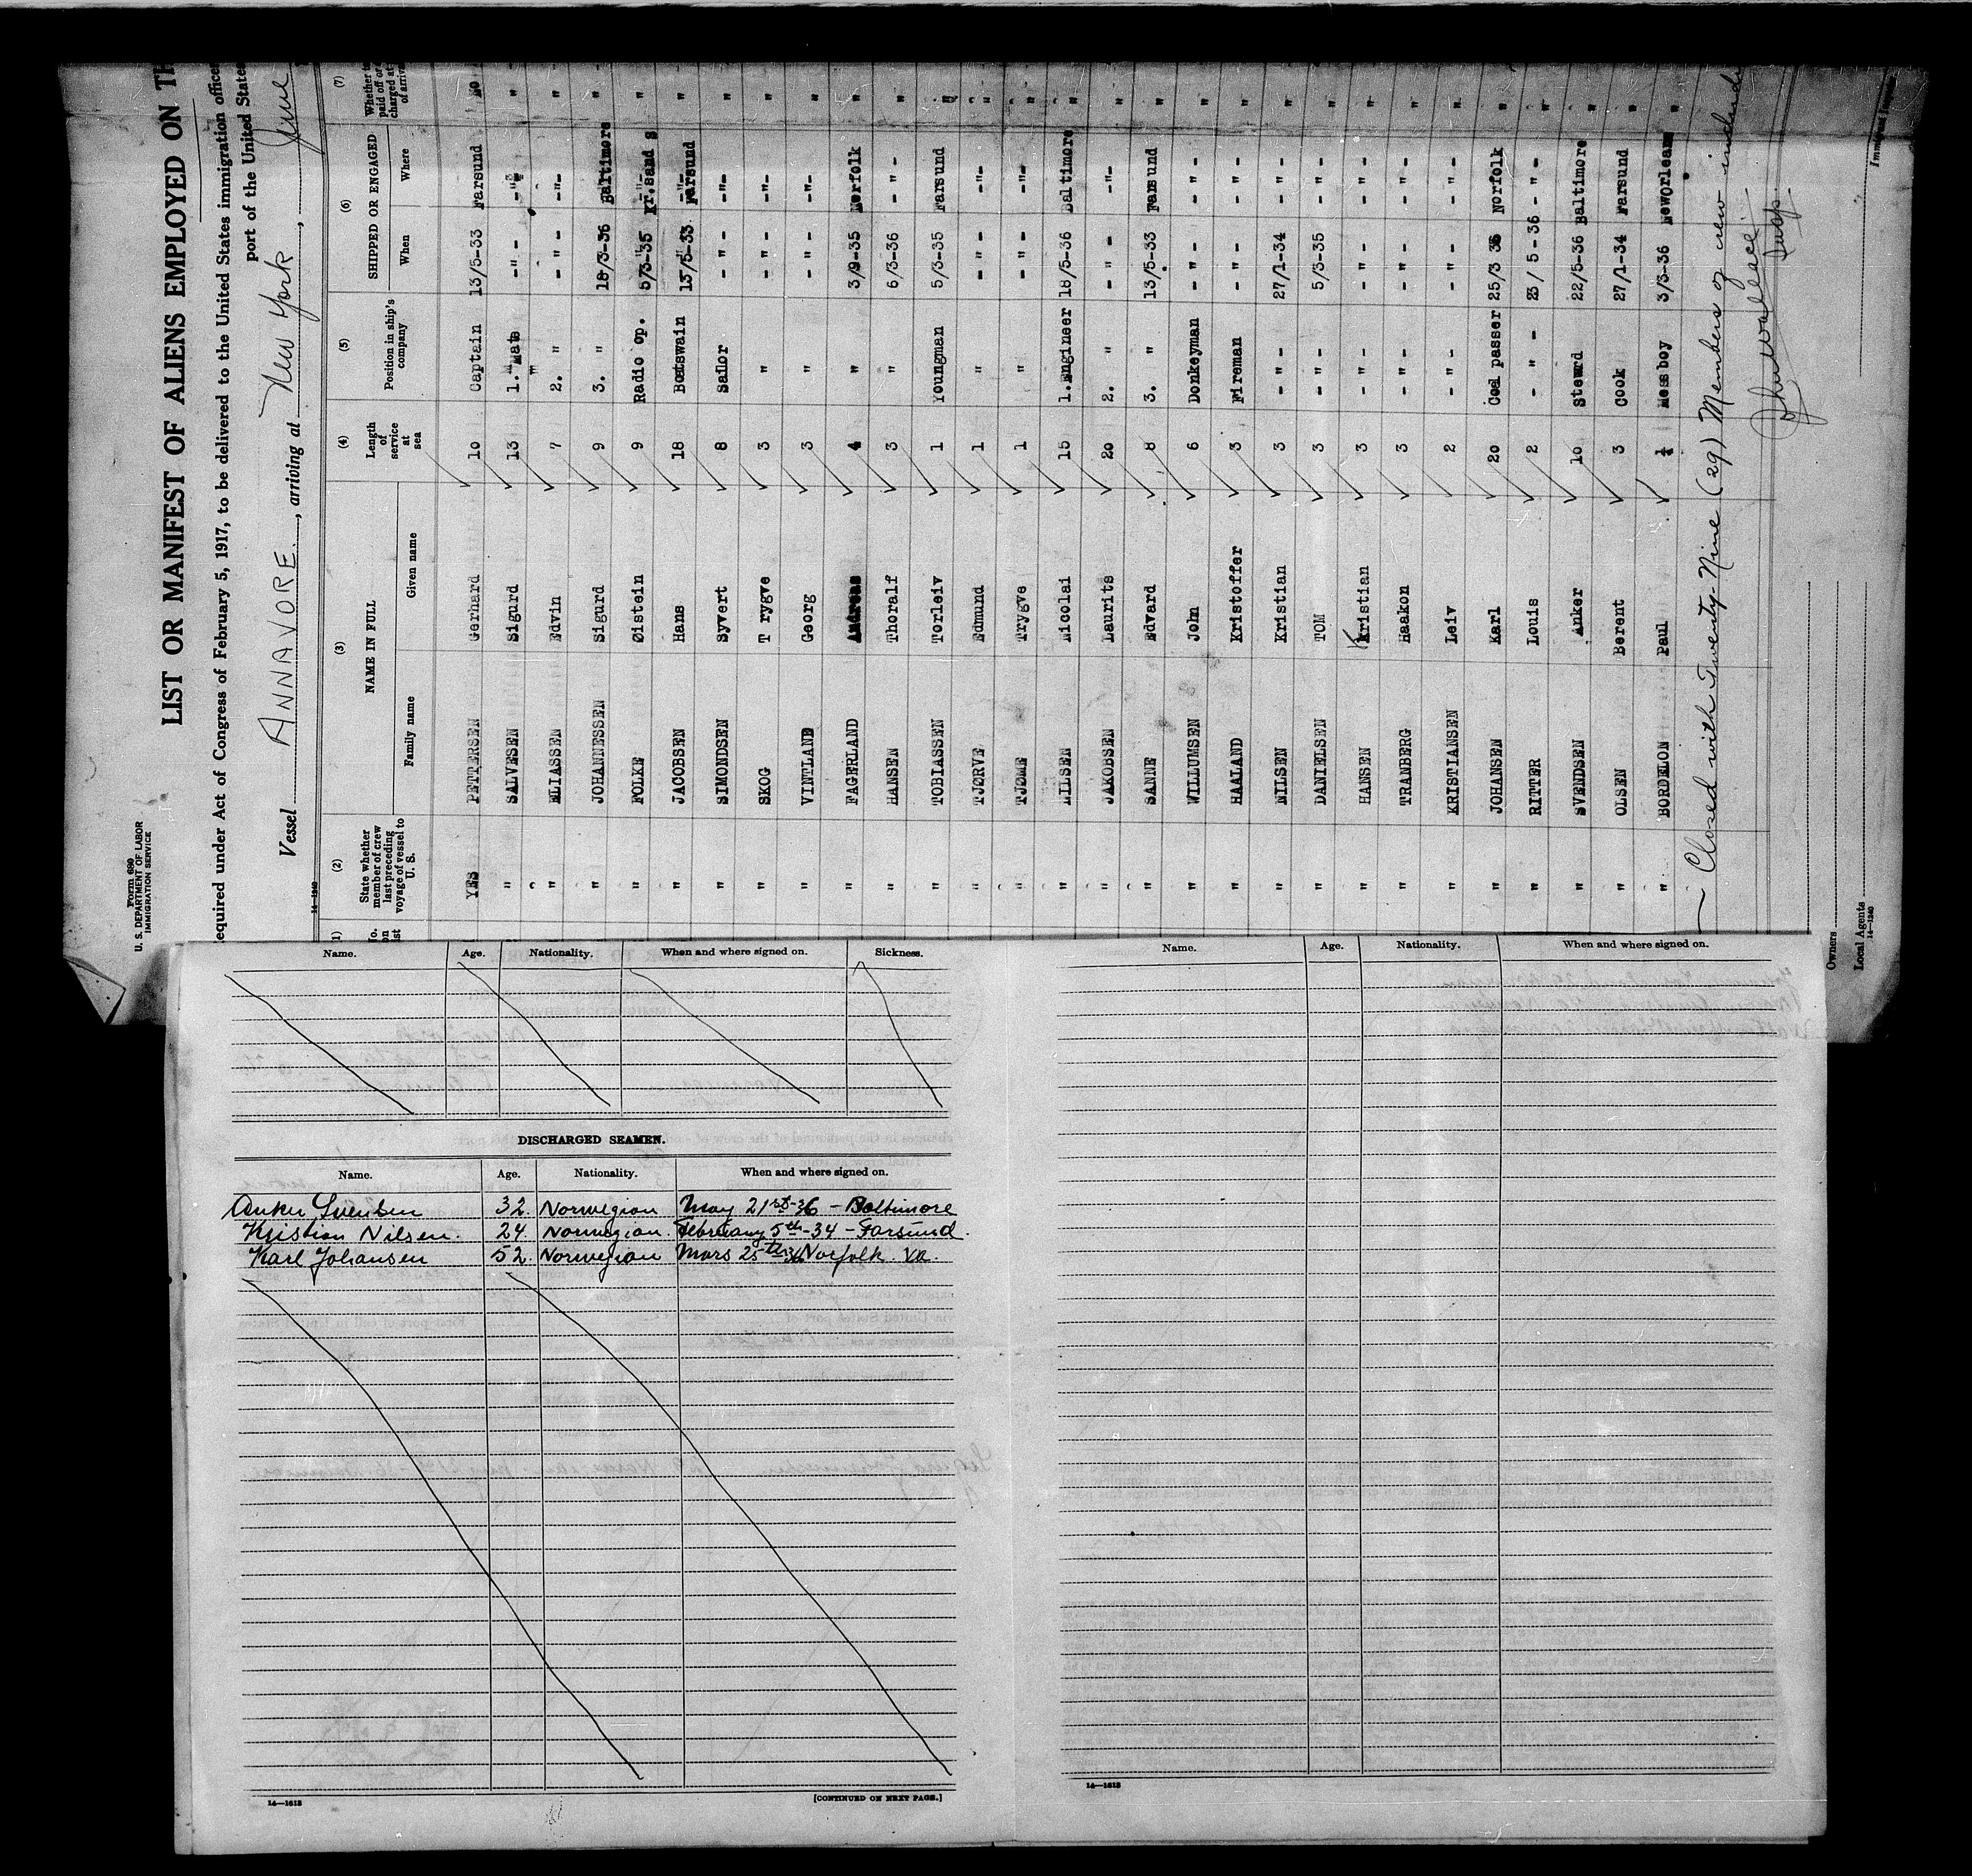 Form 680
U. S. DEPARTMENT OF LABOR
IMMIGRATION SERVICE
LIST OR MANIFEST OF ALIENS EMPLOYED ON TH
equired under Act of Congress of February 5, 1917, to be delivered to the United States immigration office
port of the United State
Vessel ANNAVORE, arriving at New York, June
14—1240
(2) (3) (4) (5) (6) (7)
State whether member of crew last preceding voyage of vessel to U. S. NAME IN FULL Length of service at sea Position in ship's company SHIPPED OR ENGAGED Whether to paid off or charged at of arriva
Family name Given name When Where
YES PETTERSEN Gerhard 10 Captain 13/5-33 Farsund no
" SALVESEN Sigurd 13 1. Mate -"- -"- "
" ELIASSEN Edvin 7 2. " -"- -"- "
" JOHANNESSEN Sigurd 9 3. " 18/3-36 Baltimore "
" FOLKE Øistein 9 Radio op. 5/3-35 Kr.sand S "
" JACOBSEN Hans 18 Boatswain 13/5-33 Farsund "
" SIMONDSEN Syvert 8 Sailor -"- -"- "
" SKOG T rygve 3 " -"- -"- "
" VINTLAND Georg 3 " -"- -"- "
" FAGERLAND Andreas 4 " 3/9-35 Norfolk "
" HANSEN Thoralf 3 " 6/3-36 -"- "
" TOBIASSEN Torleiv 1 Youngman 5/3-35 Farsund "
" TJORVE Edmund 1 " -"- -"- "
" TJOME Trygve 1 " -"- -"- "
" NILSEN Nicolai 15 1.Engineer 18/5-36 Baltimore "
" JAKOBSEN Laurits 20 2. " -"- -"- "
" SANNE Edvard 8 3. " 13/5-33 Farsund "
" WILLUMSEN John 6 Donkeyman -"- -"- "
" HAALAND Kristoffer 3 Fireman -"- -"- "
" NILSEN Kristian 3 -"- 27/1-34 -"- "
" DANIELSEN TOM 3 -"- 5/3-35 -"- "
" HANSEN Kristian 3 -"- -"- -"- "
" TRANBERG Haakon 3 -"- -"- -"- "
" KRISTIANSEN Leiv 2 -"- -"- -"- "
" JOHANSEN Karl 20 Coal passer 25/3 36 Norfolk "
" RITTER Louis 2 -"- 23/5-36 -"- "
" SVENDSEN Anker 10 Steward 22/5-36 Baltimore "
" OLSEN Berent 3 Cook 27/1-34 Farsund "
" BORDELON Paul ½ Messboy 3/3-36 NewOrleans "
Closed with Twenty-Nine (29) Members of crew includi
Jno Wallace
Insp.
Owners
Local Agents
14—1240
Immigrant
Name. Age. Nationality. When and where signed on. Sickness.
DISCHARGED SEAMEN.
Name. Age. Nationality. When and where signed on.
Anker Svensen 32. Norwegian May 21st-36 - Baltimore
Kristian Nilsen. 24. Norwegian. February 5th-34 - Farsund.
Karl Johansen 52 Norwegian Mars 25th 36 Norfolk. VA.
14—1613
[CONTINUED ON NEXT PAGE.]
Name. Age. Nationality. When and where signed on.
14—1613